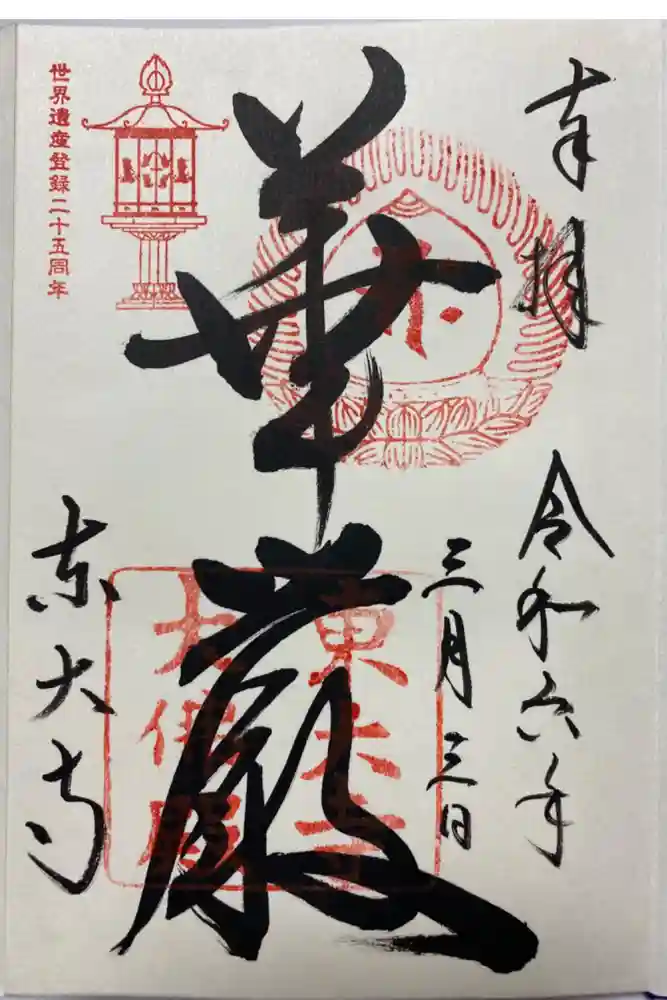 奉拝
令和六年
三月三日
華厳
東大寺
大佛殿
東大寺
世界遺産登録二十五周年